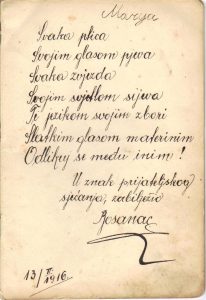 Marija
Svaka ptica
Svojim glasom pjeva
Svaka zvijezda
Svojim svjetlom sijeva
Ti jezikom svojim zbori
Slatkim glasom materinim
Odlikuj se među inim!
U znak prijateljskog
sjećanja, zabilježio
Bosanac
13/II 1916